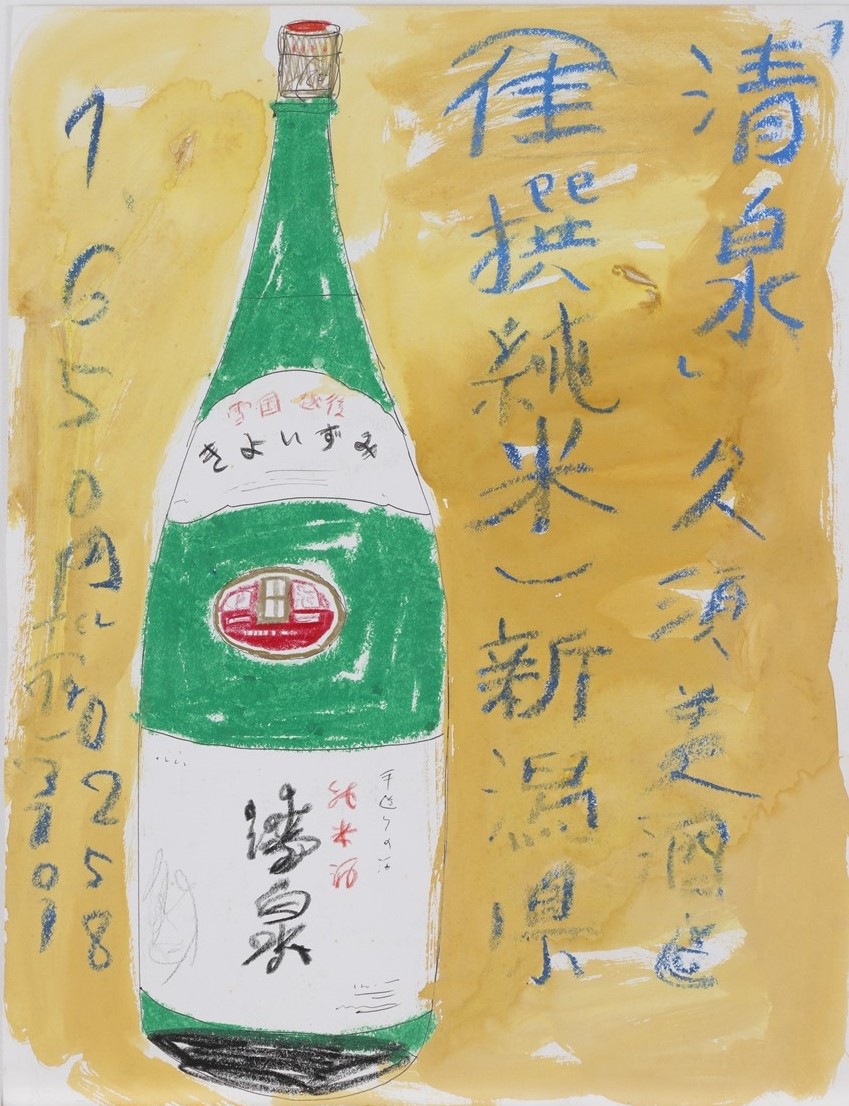 清泉、久須美酒造
(佳撰純米)新潟県
雪国 越後
きよいずみ
手造りの
純米酒
清泉
1650円
0258